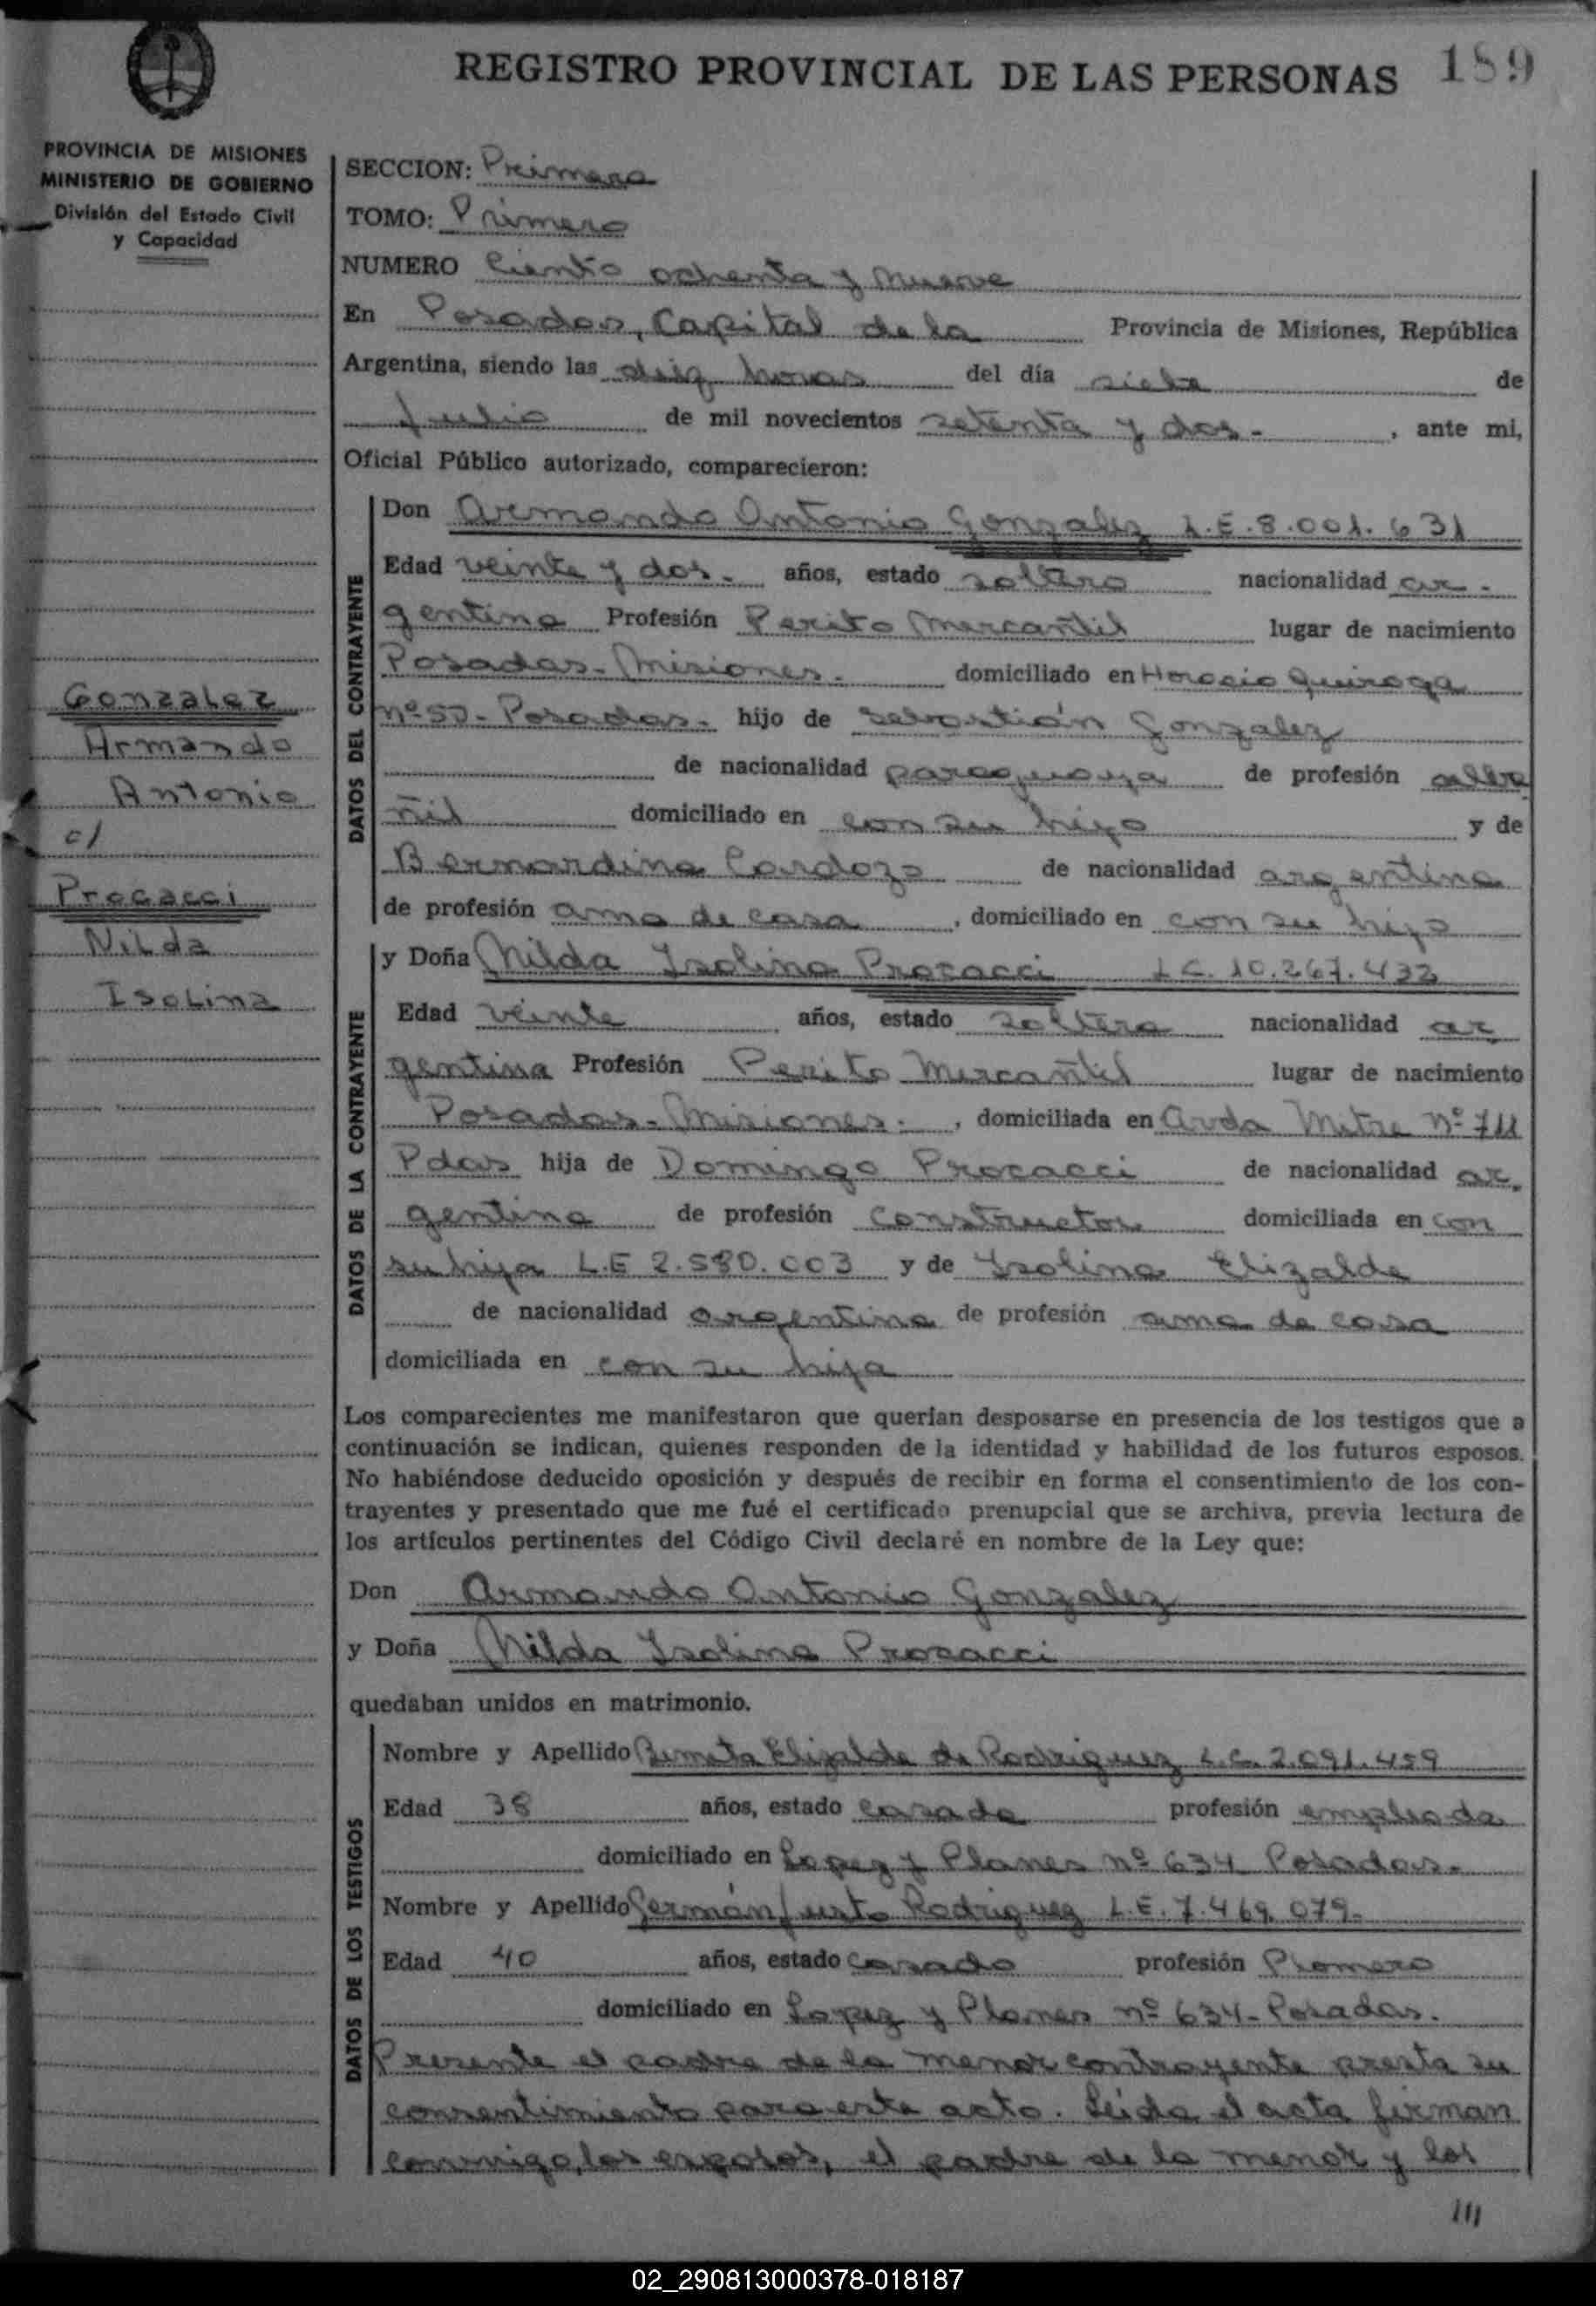 REGISTRO PROVINCIAL DE LAS PERSONAS 189
PROVINCIA DE MISIONES
MINISTERIO DE GOBIERNO
División del Estado Civil
y Capacidad
SECCION: Primera
TOMO: Primero
NUMERO Ciento ochenta y nueve
En Posadas, Capital de la Provincia de Misiones, República
Argentina, siendo las diez horas del día siete de
Julio de mil novecientos setenta y dos.- , ante mi,
Oficial Público autorizado, comparecieron:
DATOS DEL CONTRAYENTE
Don Armando Antonio Gonzalez L.E. 8.001.631
Edad veinte y dos.- años, estado soltero nacionalidad ar-
gentina Profesión Perito Mercantil lugar de nacimiento
Posadas-Misiones. domiciliado en Horacio Quiroga
nº 50- Posadas- hijo de Sebastián Gonzalez
de nacionalidad paraguaya de profesión alba
ñil domiciliado en con su hijo y de
Bernardina Cardozo de nacionalidad argentina
de profesión ama de casa , domiciliado en con su hijo
Gonzalez
Armando
Antonio
c/
Procacci
Nilda
Isolina
DATOS DE LA CONTRAYENTE
y Doña Nilda Isolina Procacci L.C. 10.267.432
Edad veinte años, estado soltera nacionalidad ar
gentina Profesión Perito Mercantil lugar de nacimiento
Posadas-Misiones. , domiciliada en Avda Mitre Nº 711
Pdas hija de Domingo Procacci de nacionalidad ar
gentina de profesión constructor domiciliada en con
su hija L.E 2.580.003 y de Isolina Elizalde
de nacionalidad argentina de profesión ama de casa
domiciliada en con su hija
Los comparecientes me manifestaron que querían desposarse en presencia de los testigos que a
continuación se indican, quienes responden de la identidad y habilidad de los futuros esposos.
No habiéndose deducido oposición y después de recibir en forma el consentimiento de los con-
trayentes y presentado que me fué el certificado prenupcial que se archiva, previa lectura de
los artículos pertinentes del Código Civil declaré en nombre de la Ley que:
Don Armando Antonio Gonzalez
y Doña Nilda Isolina Procacci
quedaban unidos en matrimonio.
DATOS DE LOS TESTIGOS
Nombre y Apellido Elizalde de Rodriguez L.C. 2.091.459
Edad 38 años, estado casada profesión empleada
domiciliado en Lopez y Planes nº 634 Posadas.
Nombre y Apellido Germán Justo Rodriguez L.E. 7.469.079.
Edad 40 años, estado casado profesión Plomero
domiciliado en Lopez y Planes nº 634- Posadas.
Presente el padre de la menor contrayente presta su
consentimiento para este acto. Leida el acta firman
conmigo, los esposos, el padre de la menor y los
///
02_290813000378-018187